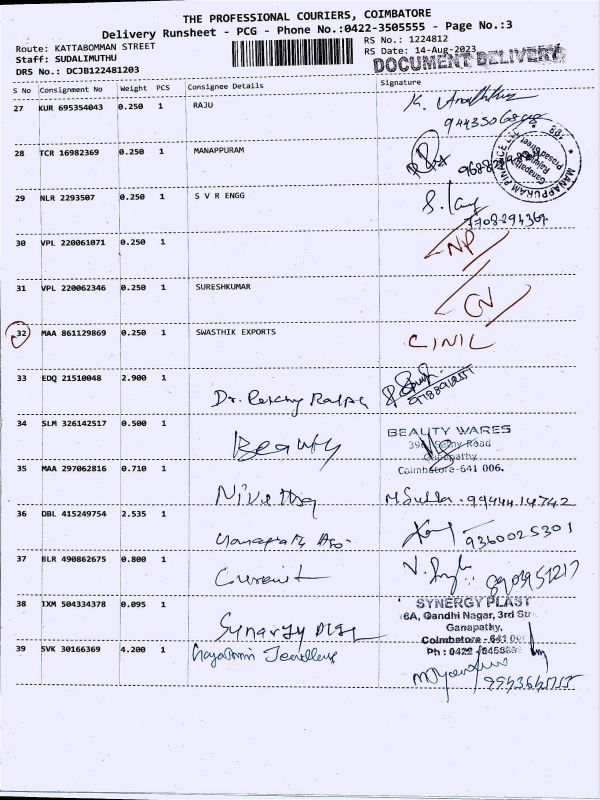 THE PROFESSIONAL COURIERS, COIMBATORE
Delivery Runsheet - PCG - Phone No.:0422-3505555 - Page No.:3
Route: KATTABOMMAN STREET
Staff: SUDALIMUTHU
DRS No.: DCJB122481203
RS No.: 1224812
RS Date: 14-Aug-2023
DOCUMENT DELIVERY
S No Consignment No Weight PCS Consignee Details Signature
27 KUR 695354043 0.250 1 RAJU
28 TCR 16982369 0.250 1 MANAPPURAM
MANAPPURAM FINANCE
Ganapathy
29 NLR 2293507 0.250 1 S V R ENGG
30 VPL 220061071 0.250 1 NP
31 VPL 220062346 0.250 1 SURESHKUMAR
32 MAA 861129869 0.250 1 SWASTHIK EXPORTS CINIL
33 EDQ 21510048 2.900 1 Dr.
34 SLM 326142517 0.500 1 Beauty
BEAUTY WARES
Road
Ganapathy
Coimbatore-641 006.
35 MAA 297062816 0.710 1 Nivetha 9944414742
36 DBL 415249754 2.535 1 9360025301
37 BLR 490862675 0.800 1 8903951217
38 IXM 504334378 0.095 1 Synergy Plast
SYNERGY PLAST
6A, Gandhi Nagar, 3rd
Ganapathy,
Coimbatore - 641
Ph : 0422
39 SVK 30166369 4.200 1 Jewellers